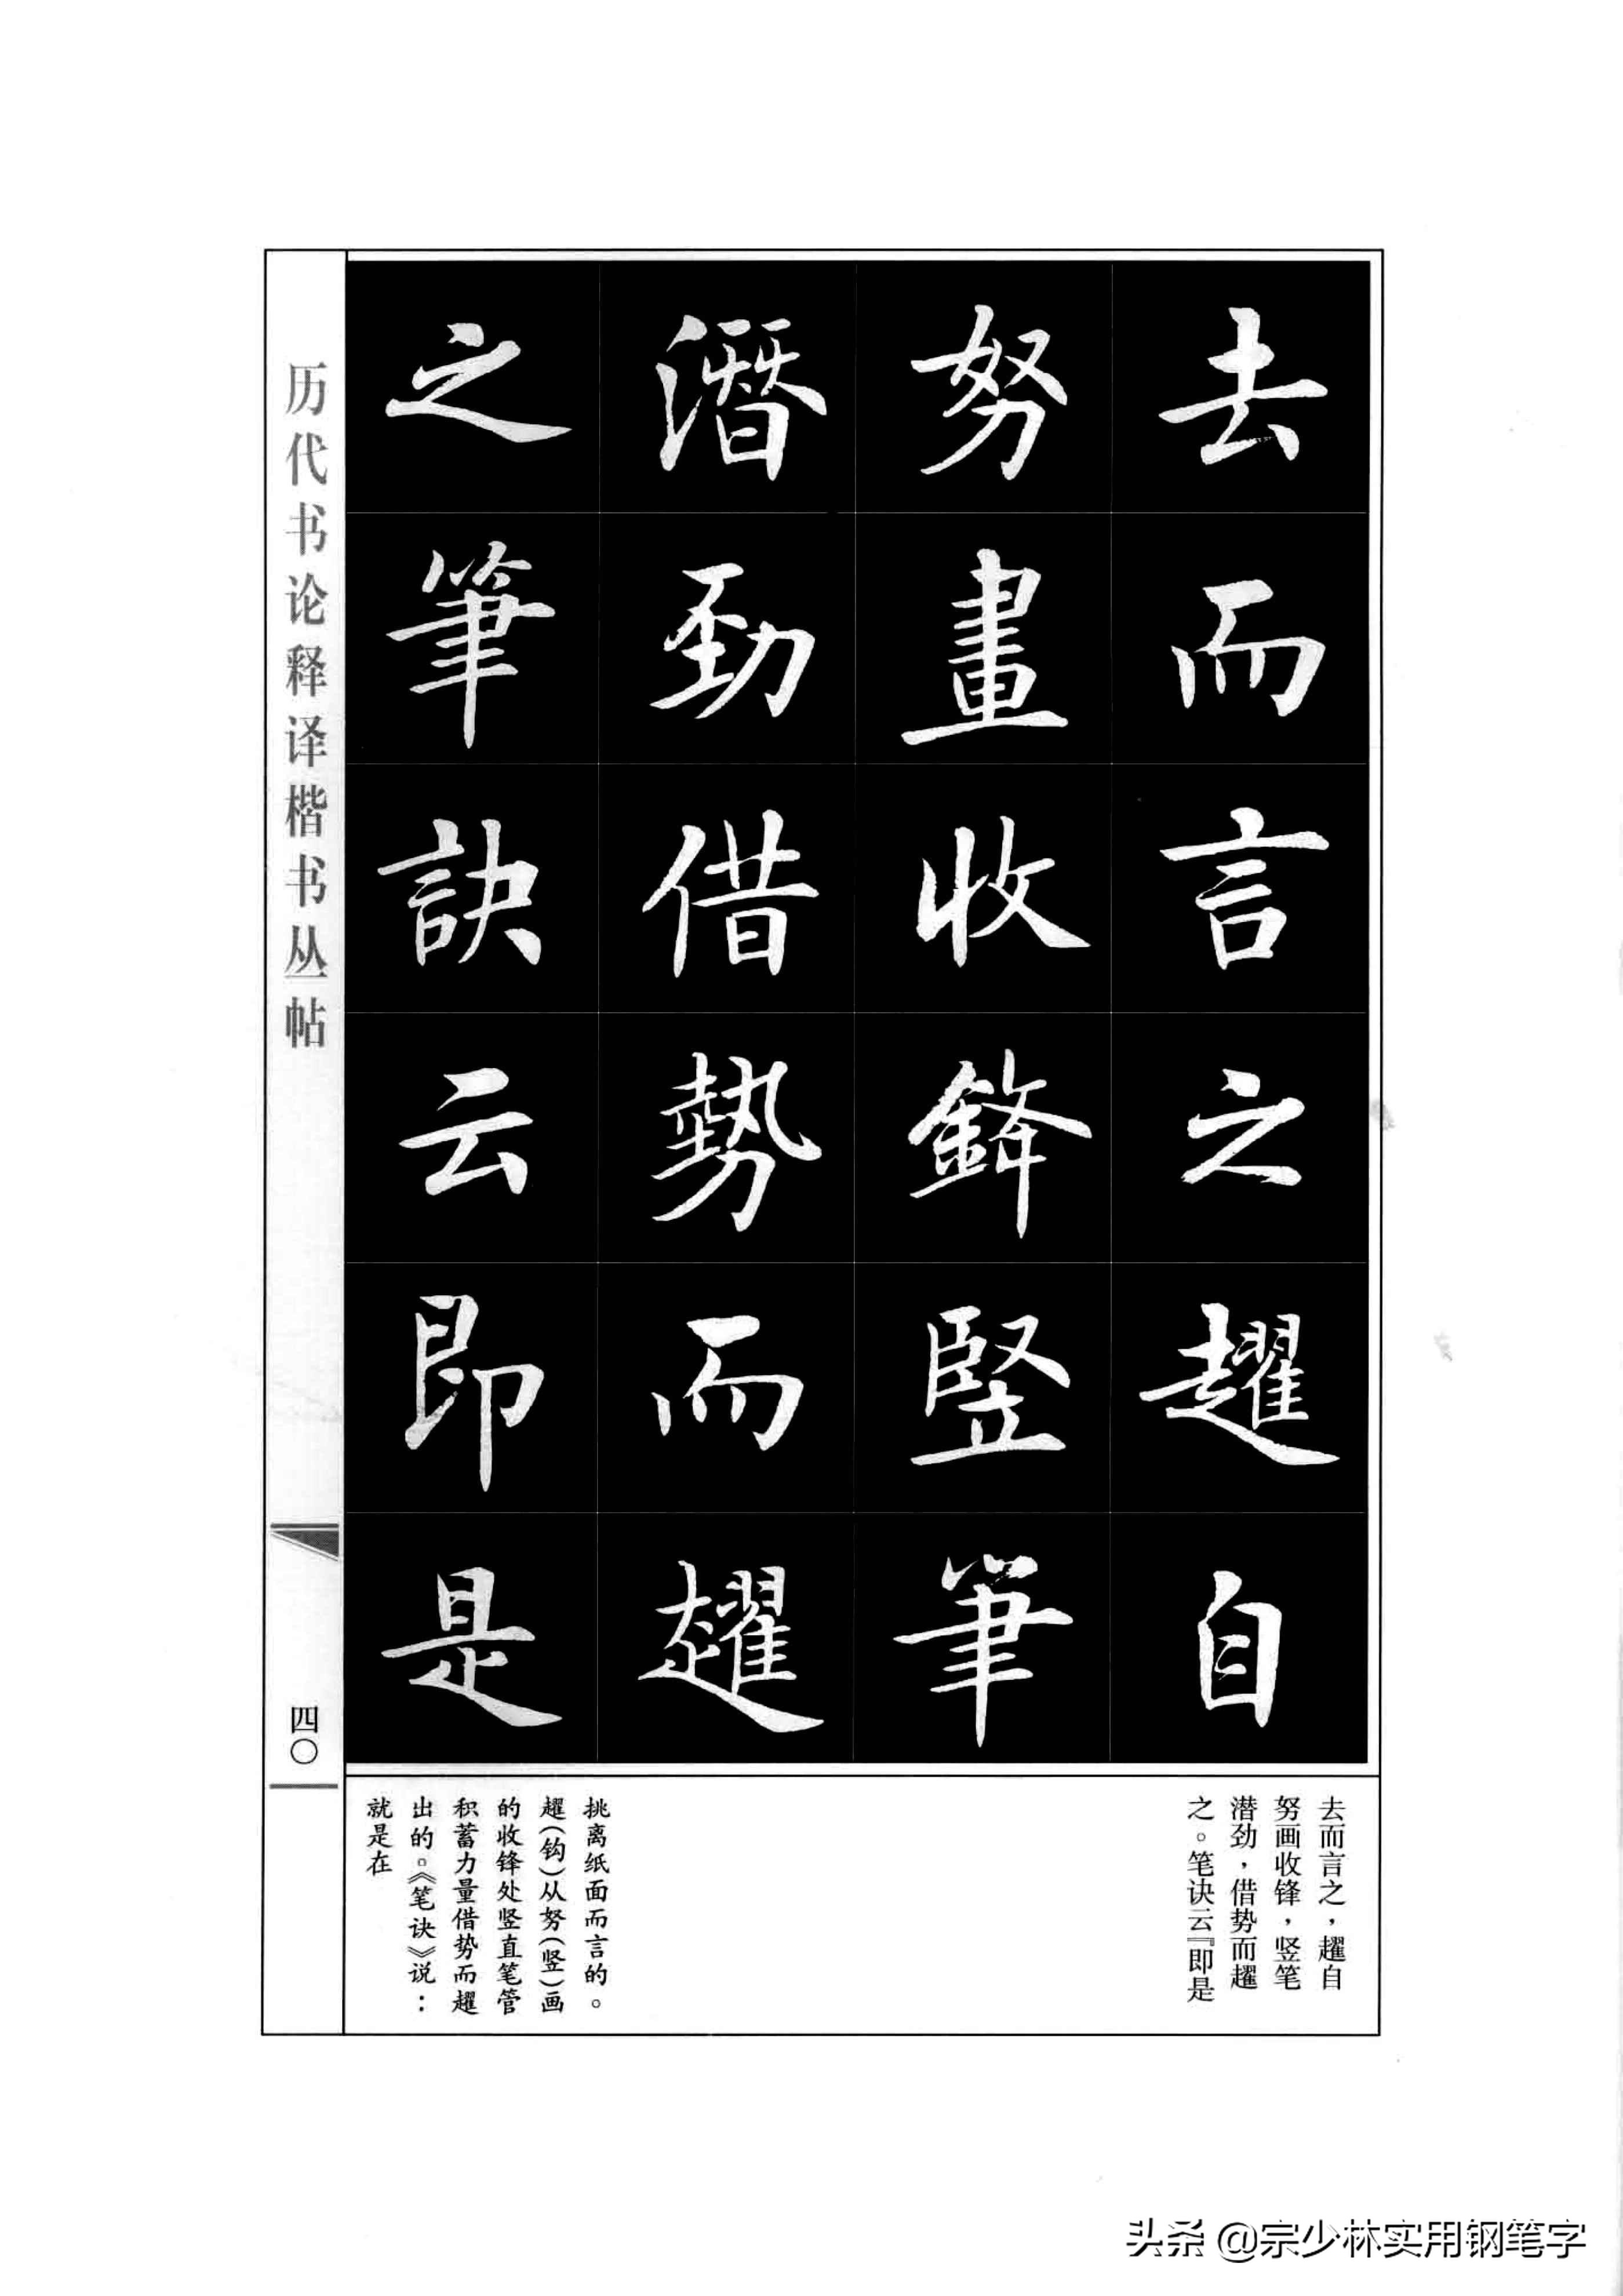 去而言之趯自
努畫收鋒竪筆
潛勁借勢而趯
之筆訣云即是
去而言之，趯自
努画收锋，竖笔
潜劲，借势而趯
之。笔诀云『即是
挑离纸面而言的。
趯(钩)从努(竖)画
的收锋处竖直笔管
积蓄力量借势而趯
出的。《笔诀》说：
就是在
历代书论释译楷书丛帖
四〇
头条 @宗少林实用钢笔字